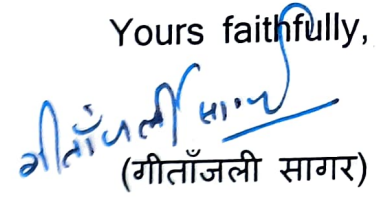 Yours faithfully,
गीताँजली सागर
(गीताँजली सागर)